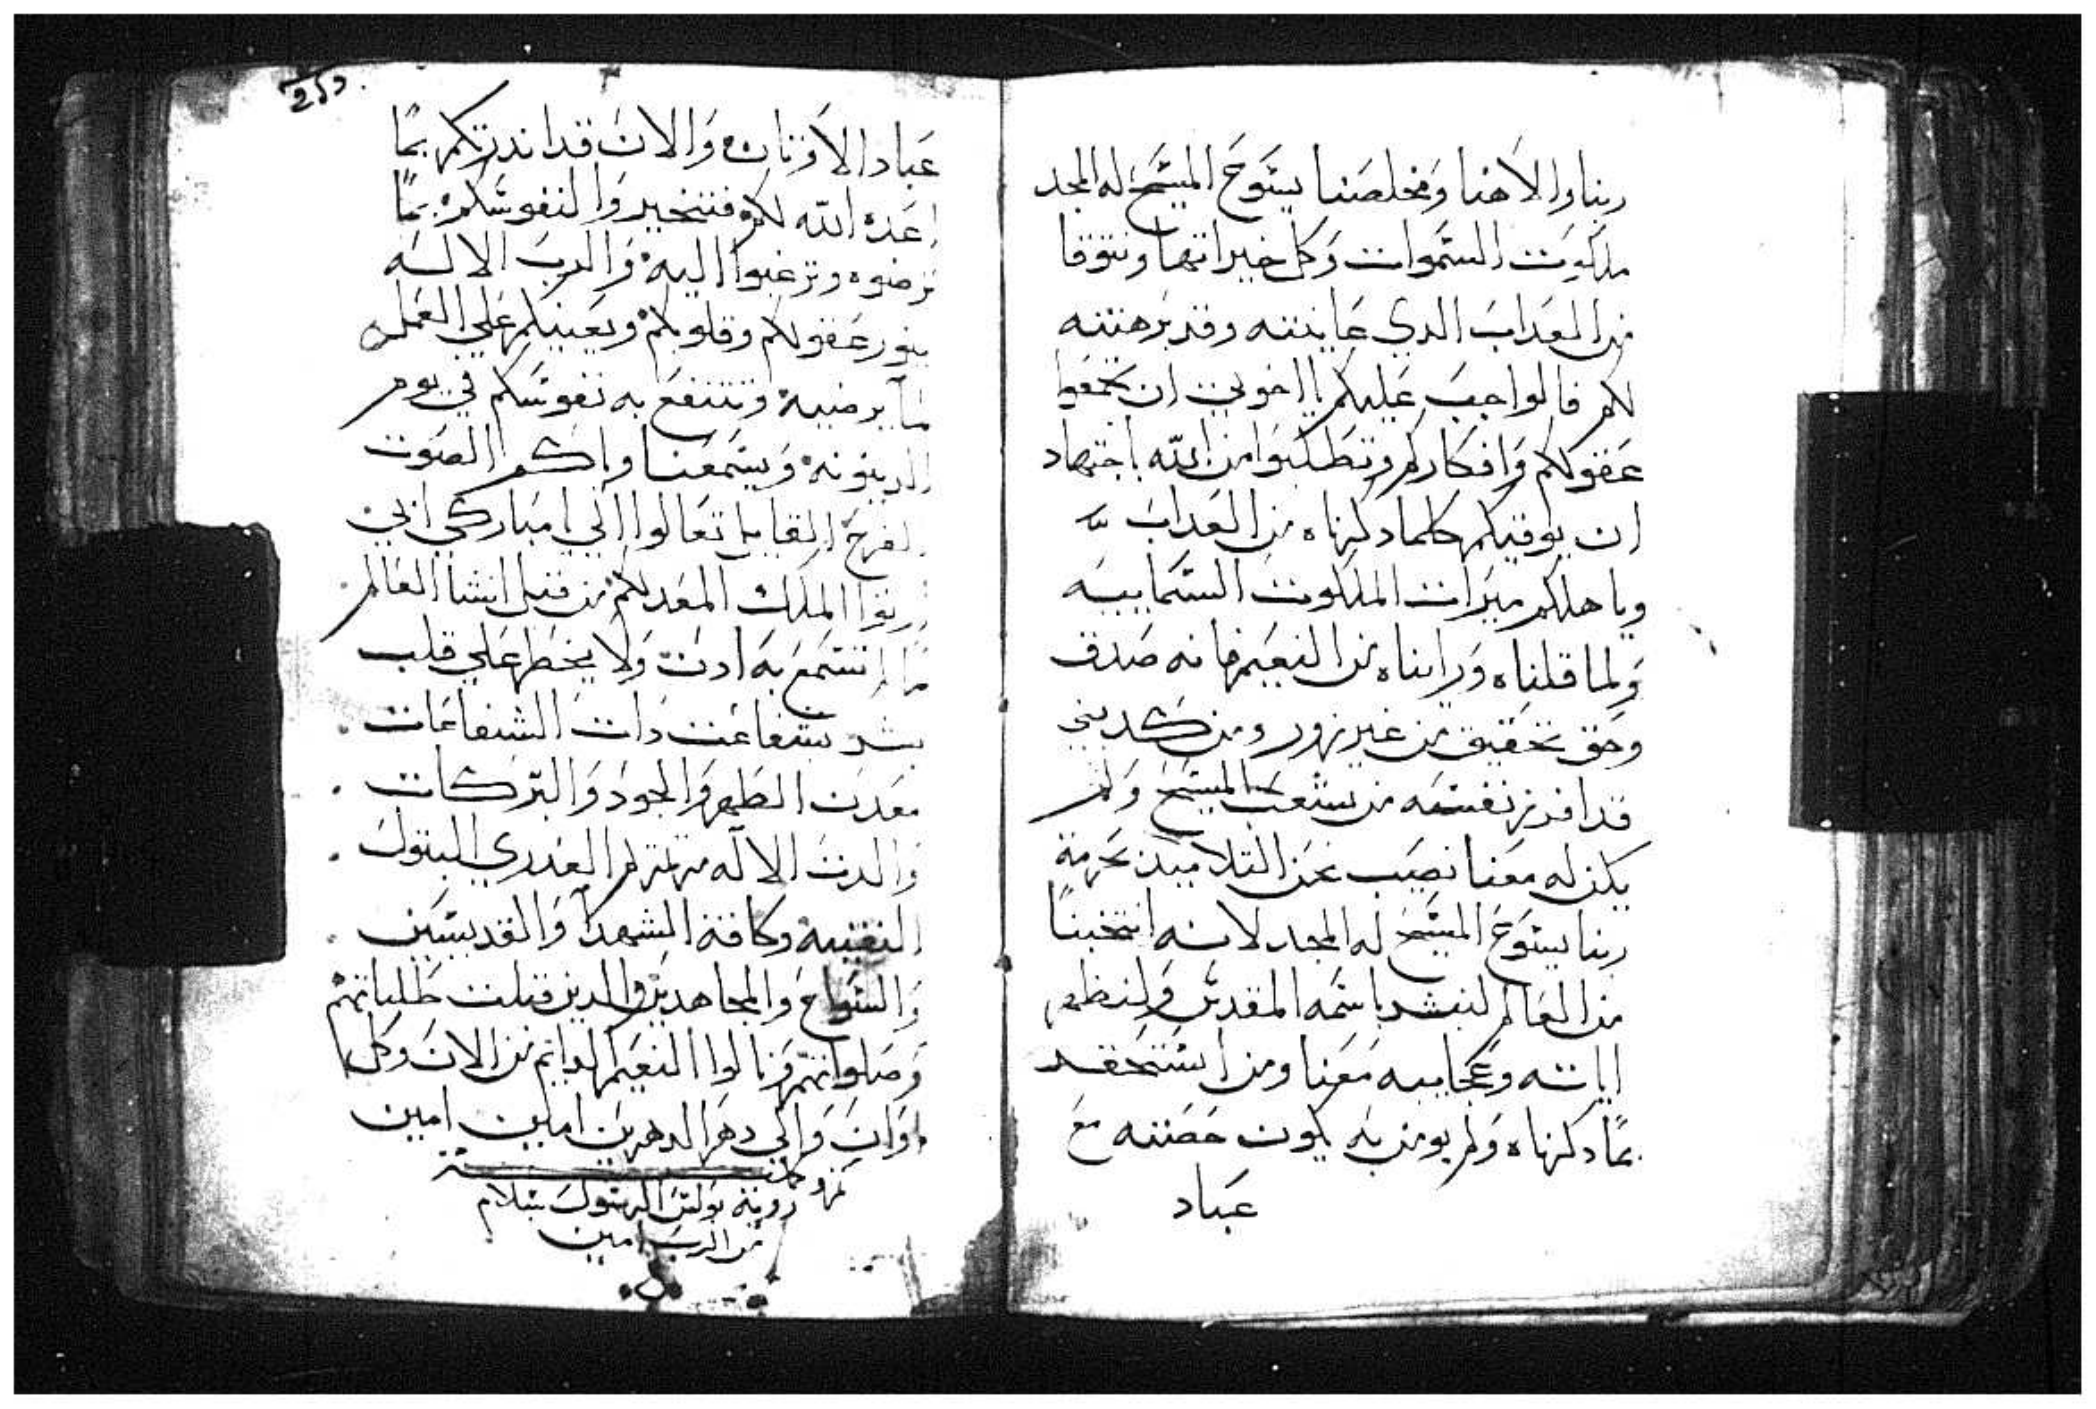 ربنا والاهنا ومخلصنا يسوع المسيح له المجد
ملكوت السموات وكل خيراتها ونتوقا
من العداب الدي عاينته وقد برهنته
لكم فالواجب عليكم يا اخوتي ان تجمعوا
عقولكم وافكاركم وتطلبوا من الله باجتهاد
ان يوقيكم كلما دكرناه من العداب
وياهلكم ميرات الملكوت السماييه
ولما قلناه وراناه من النعيم فانه صدق
وحق تحقيق من غير زور ومن كدبني
قد افرز نفسه من شعب المسيح ولم
يكن له معنا نصيب نحن التلاميد بحرمة
ربنا يسوع المسيح له المجد لانه انتخبنا
من العالم لنبشر باسمه المقدس ولنظهر
اياته وعجايبه معنا ومن استحقد
بما دكرناه ولم يومن به يكون حصته مع
عباد
عباد الاوتان والان قد اندرتكم بما
اعده الله لكم فتتخيروا لنفوسكم بما
ترضوه وترغبوا اليه والرب الاله
ينور عقولكم وقلوبكم ويعينكم على العمل
بما يرضيه وتنتفع به نفوسكم في يوم
الدينونه ويسمعنا واياكم الصوت
الفرح القايل تعالوا الي يا مباركي ابي
ارتوا الملك المعد لكم من قبل انشا العالم
ما لم تسمع به ادن ولا يخطر على قلب
بشر بشفاعت دات الشفاعات
معدن الطهر والجود والبركات
والدت الاله مرتمريم العدري البتول
النقيه وكافة الشهدا والقديسين
والسواح والمجاهدين والدين قبلت طلباتهم
وصلواتهم ونالوا النعيم الدايم من الان وكل
اوان والى دهر الداهرين امين امين
تمت وكملت
رويه بولس الرسول بسلام
من الرب امين